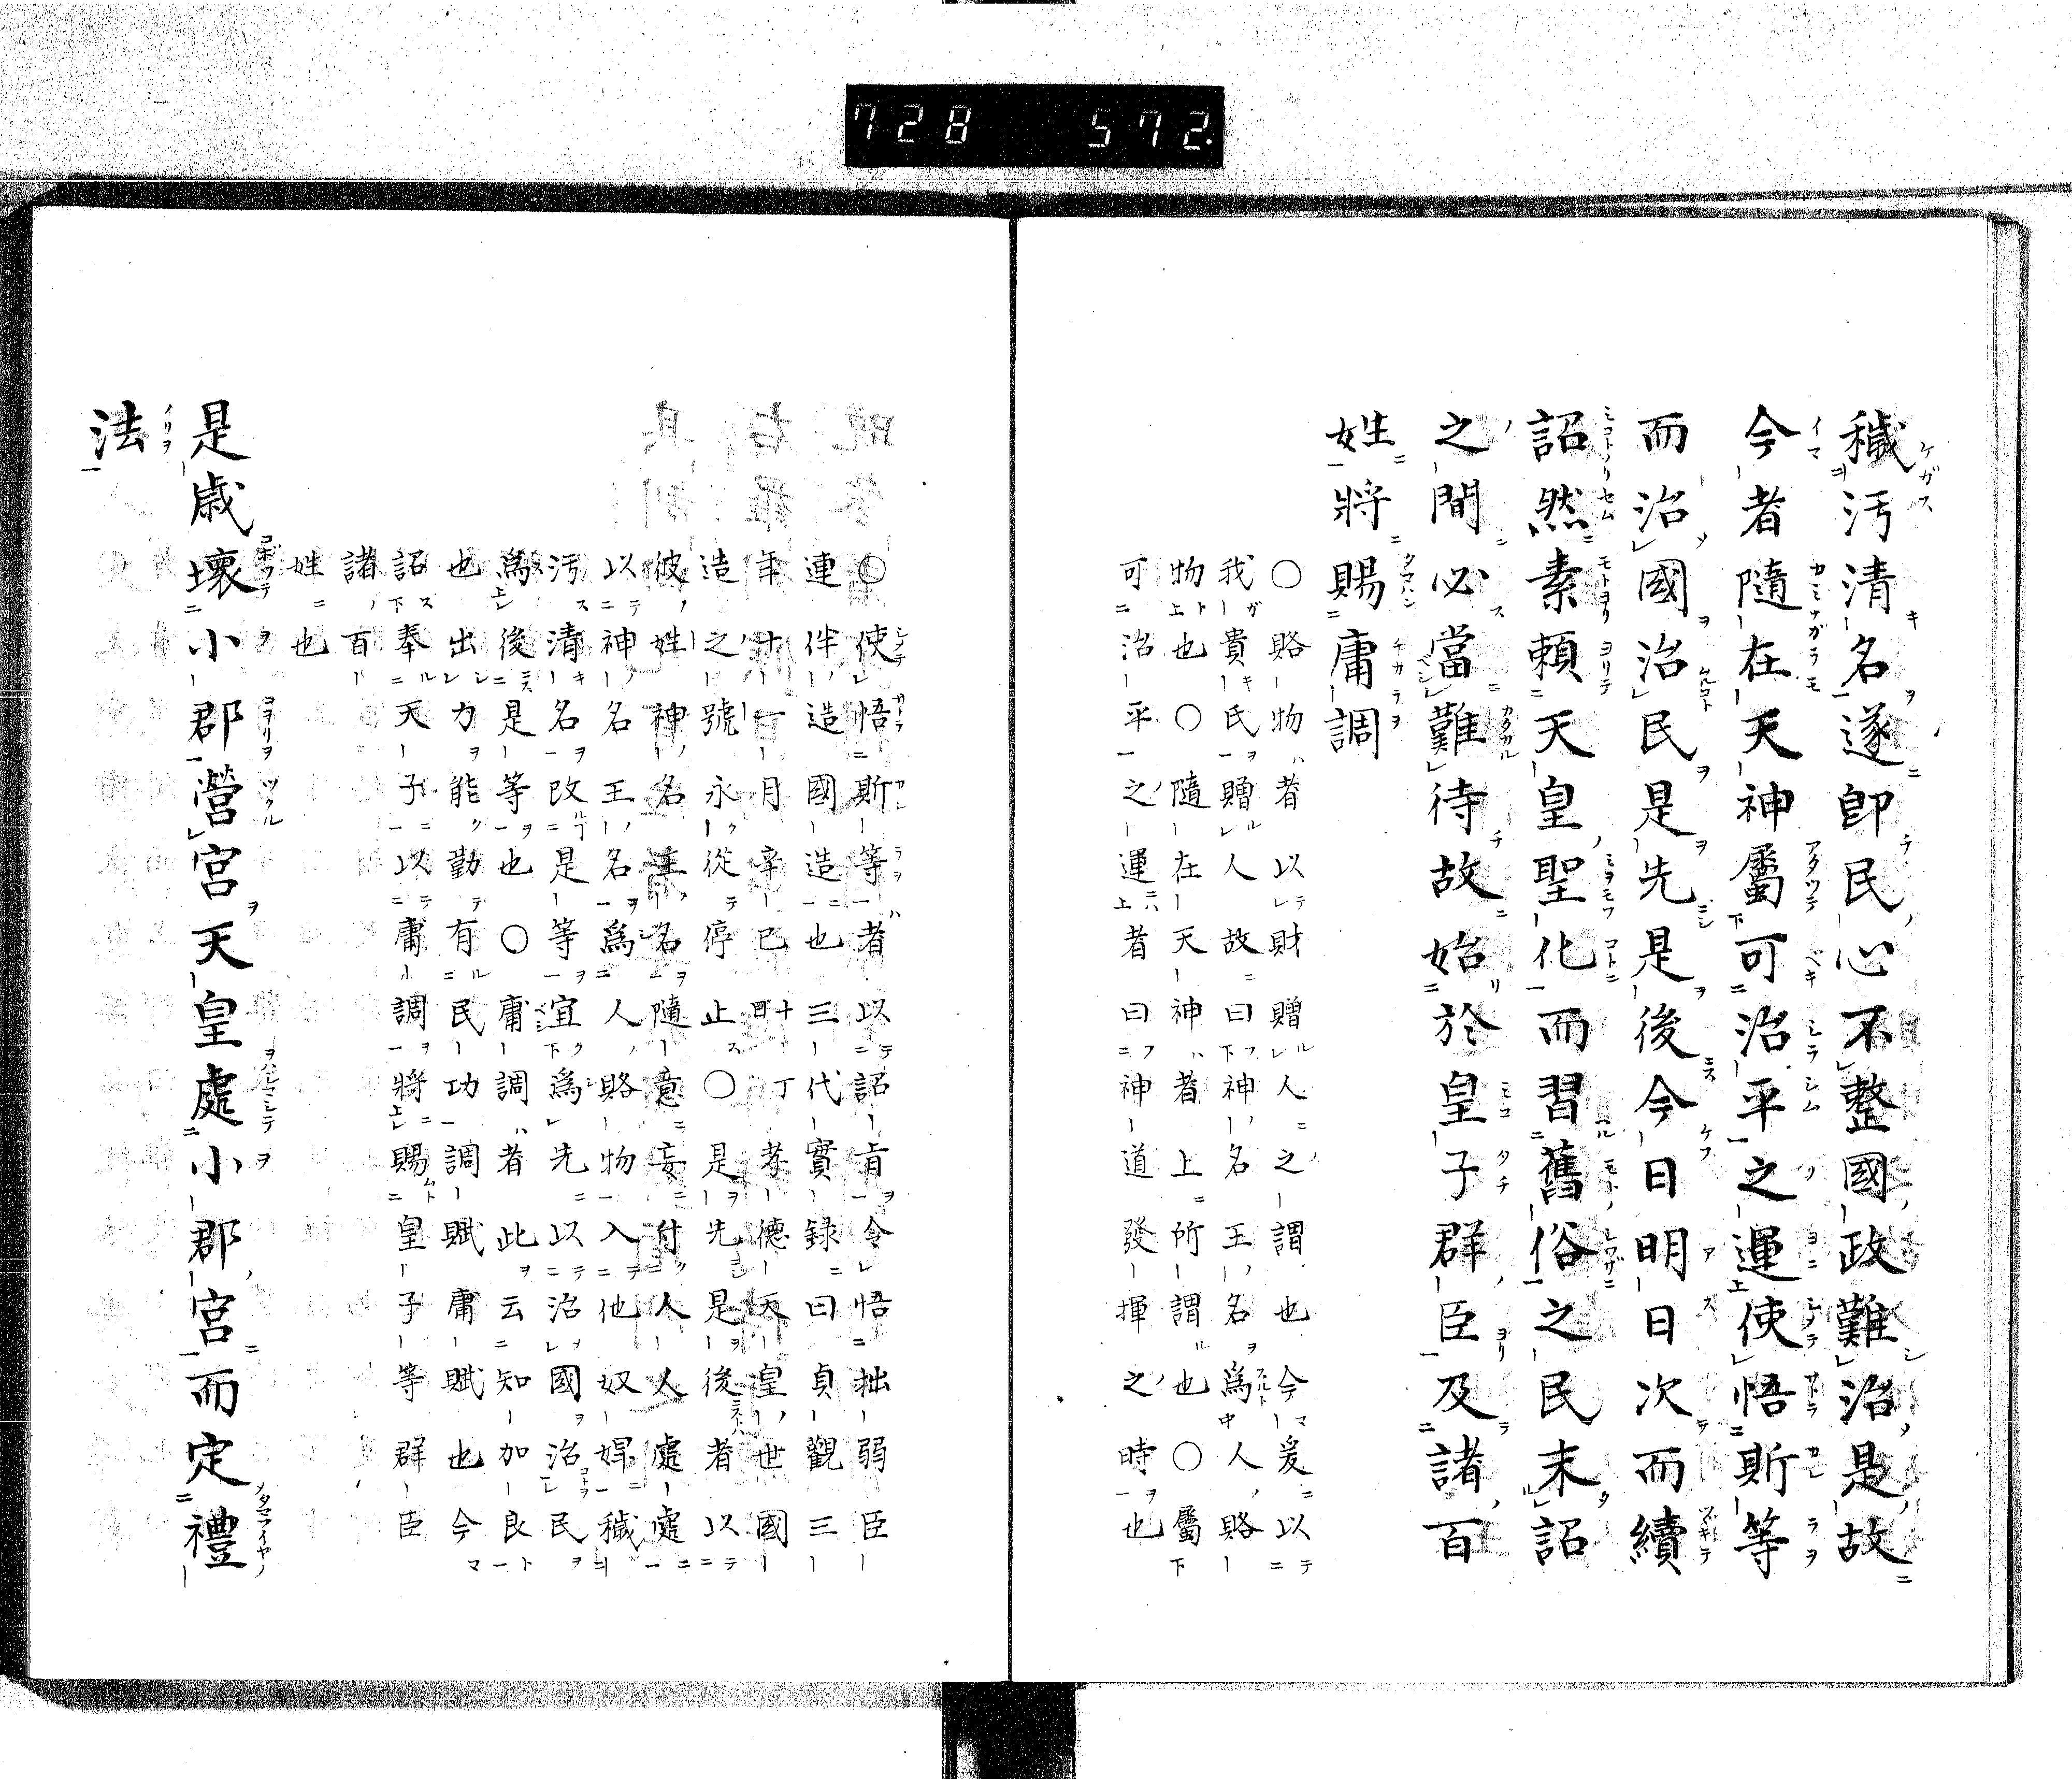 728 572.
穢汚清名遂即民心不整國政難治是故
今者隨在天神屬可治平之運使悟斯等
而治國治民是先是後今日明日次而續
詔然素頼天皇聖化而習舊俗之民末詔
之間必當難待故始於皇子群臣及諸百
姓將賜庸調
○賂物者以財贈人之謂也今爰以
我貴氏贈人故曰神名王名爲人賂
物也○隨在天神者上所謂也○屬
可治平之運者曰神道發揮之時也
○使悟斯等者以詔肯令悟拙弱臣
連伴造國造也三代實録曰貞觀三
年十一月辛巳孝德天皇世國
造之號永從停止○是先是後者以
彼姓神名王名隨意妄付人人處處
以神名王名爲人賂物入他奴婢穢
汚清名改是等宜爲先以治國治民
爲後是等也○庸調者此云知加良
也出力能勤有民功調賦庸賦也今
詔奉天子以庸調將賜皇子等群臣
諸百
姓也
是歳壞小郡營宮天皇處小郡宮而定禮
法